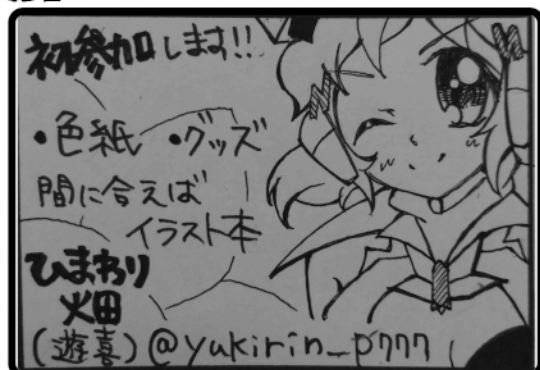 初参加します!!
・色紙 ・グッズ
間に合えば
イラスト本
ひまわり
畑
(遊喜) @yukirin_p777